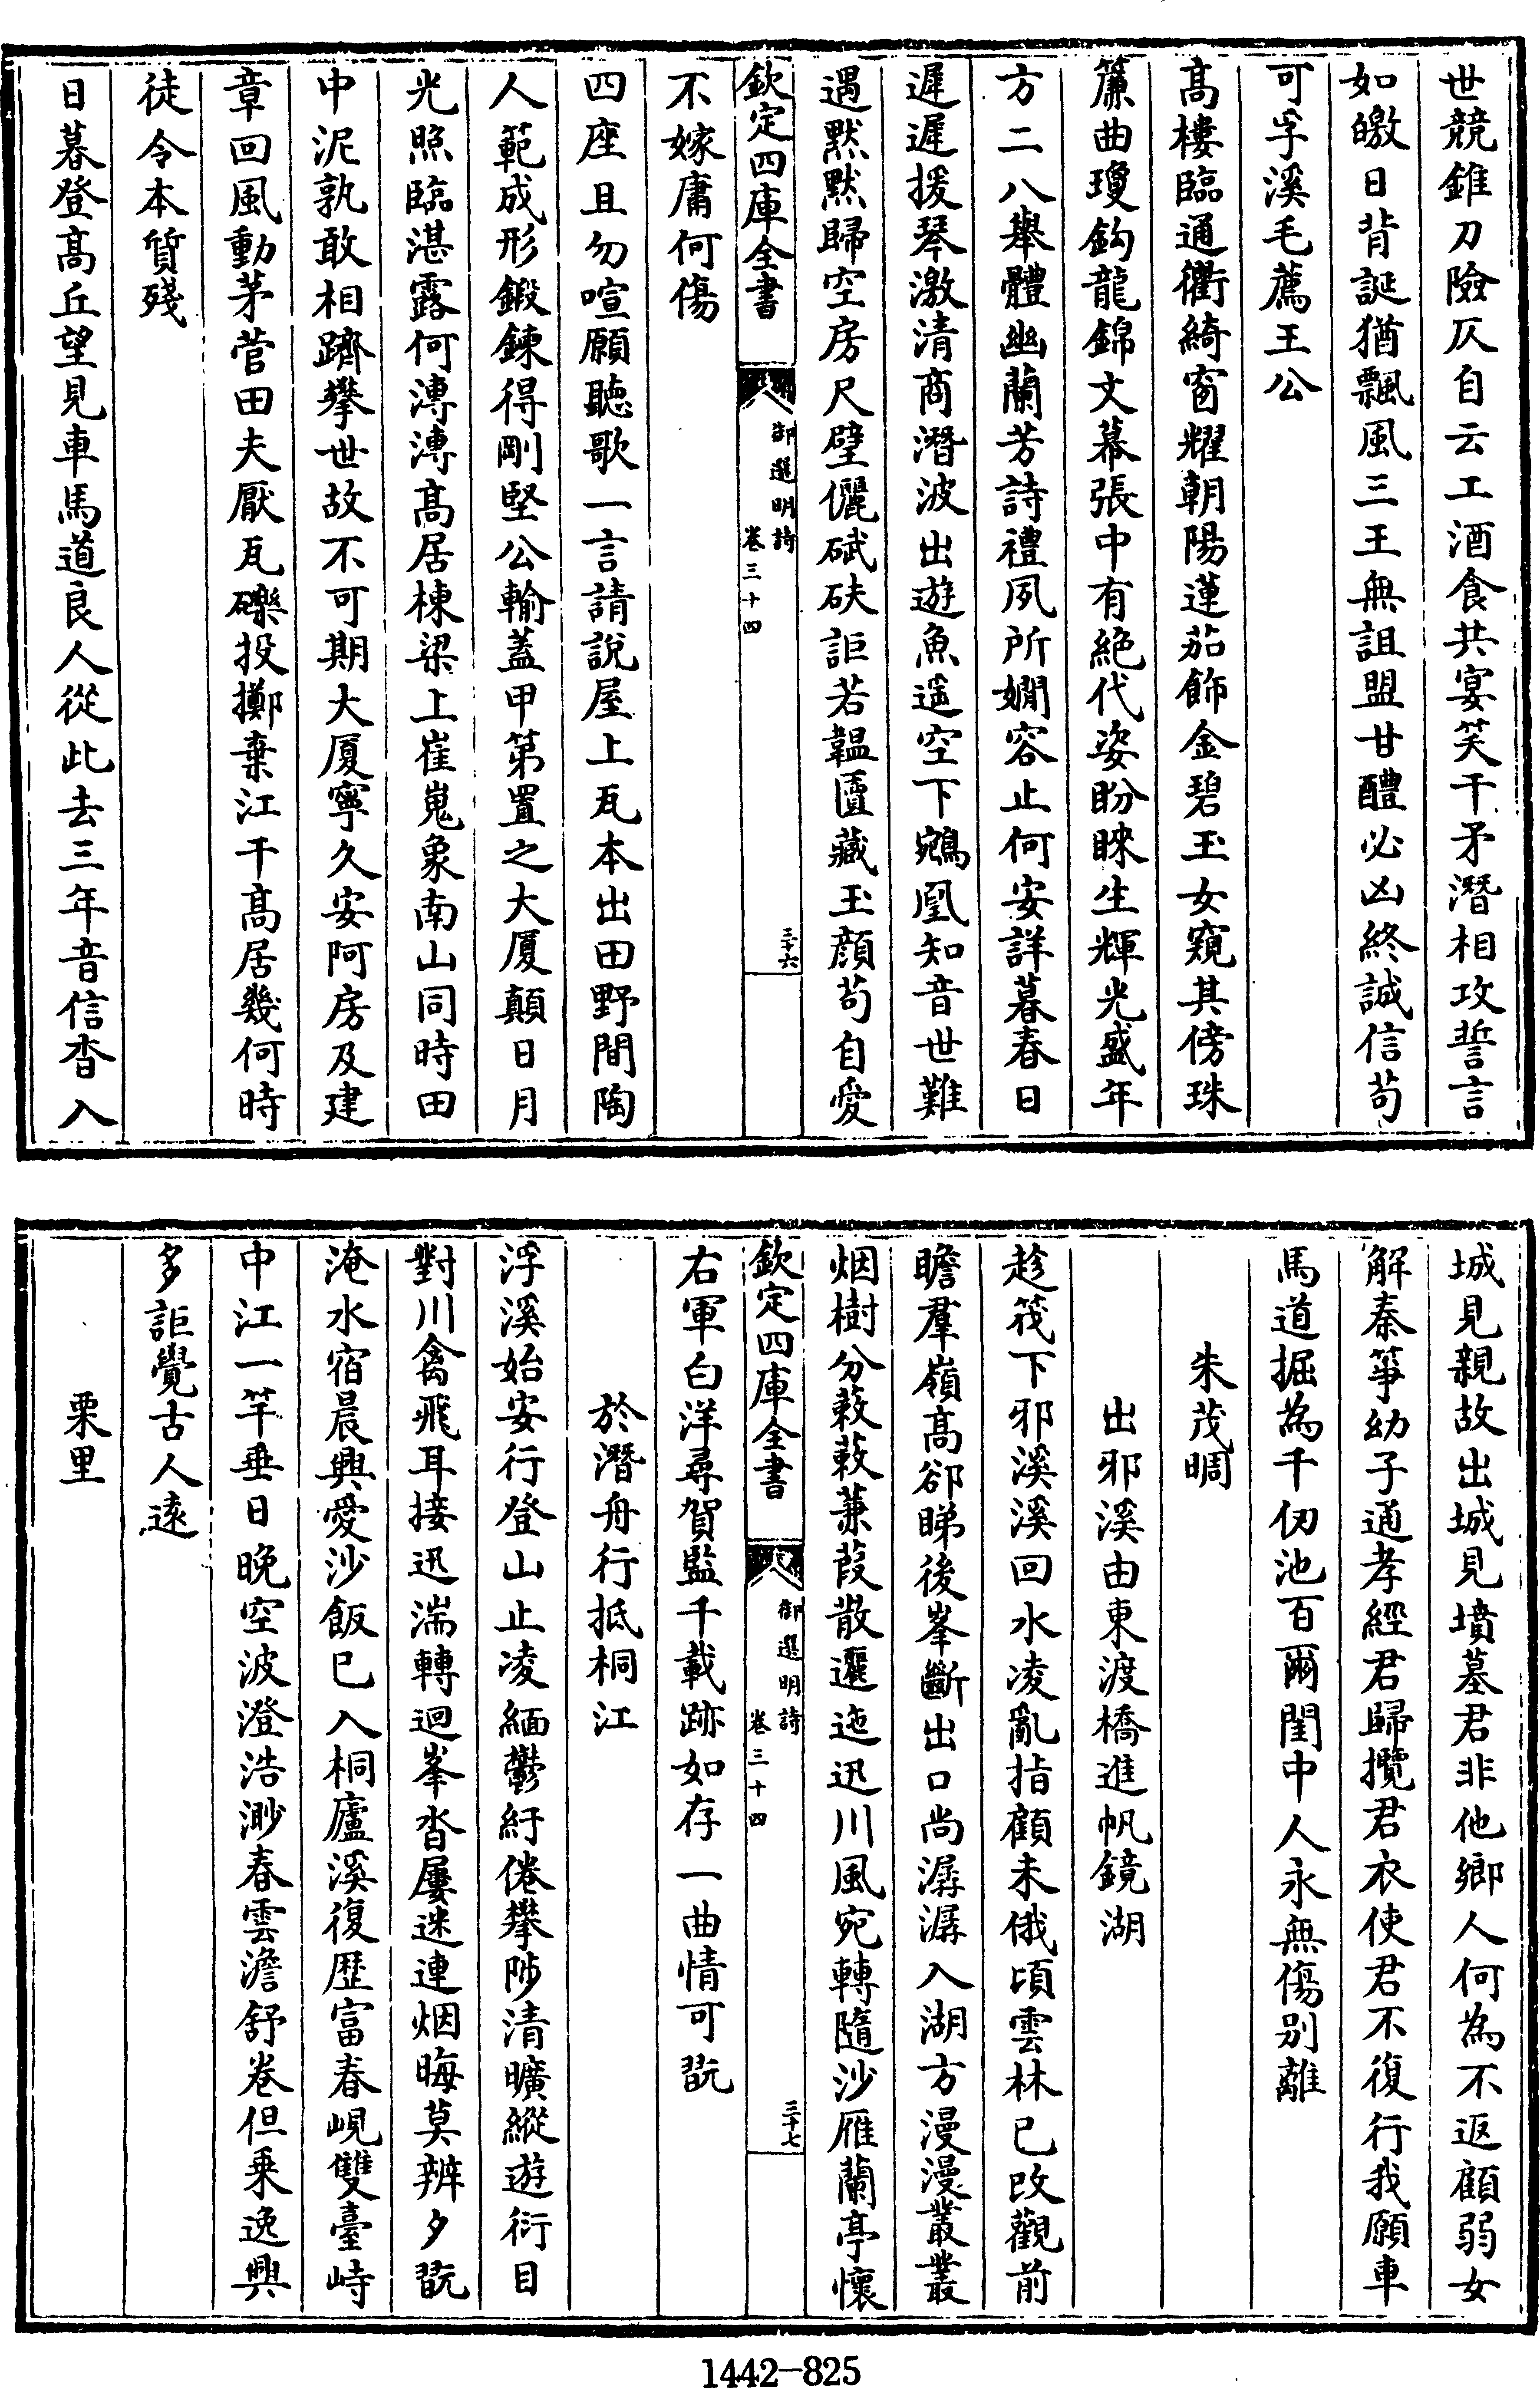 世競錐刀險仄自云工酒食共宴笑干矛潛相攻誓言
如皦日背誕猶飄風三王無詛盟甘醴必凶終誠信苟
可孚溪毛薦王公
髙樓臨通衢綺窗耀朝陽蓮茄飾金碧玉女窺其傍珠
簾曲瓊鈎龍錦文幕張中有絶代姿盼睞生輝光盛年
方二八舉體幽蘭芳詩禮夙所嫺容止何安詳暮春日
遲遲援琴激清商潛波出遊魚遥空下鵷凰知音世難
遇黙黙歸空房尺璧儷碔砆詎若韞匵藏玉顔苟自愛
欽定四庫全書
御選明詩
卷三十四
三十六
不嫁庸何傷
四座且勿喧願聽歌一言請說屋上瓦本出田野間陶
人範成形鍛鍊得剛堅公輸蓋甲第置之大厦顛日月
光照臨湛露何漙漙髙居棟梁上崔嵬象南山同時田
中泥孰敢相躋攀世故不可期大厦寧久安阿房及建
章回風動茅菅田夫厭瓦礫投擲棄江干髙居幾何時
徒令本質殘
日暮登髙丘望見車馬道良人從此去三年音信杳入
城見親故出城見墳墓君非他鄉人何為不返顧弱女
解秦箏幼子通孝經君歸攬君衣使君不復行我願車
馬道掘為千仞池百爾閨中人永無傷别離
朱茂晭
出邪溪由東渡橋進帆鏡湖
趁筏下邪溪溪回水凌亂指顧未俄頃雲林已改觀前
瞻羣嶺髙郤睇後峯斷出口尚潺潺入湖方漫漫叢叢
烟樹分蔌蔌蒹葭散邐迤迅川風宛轉隨沙雁蘭亭懷
欽定四庫全書
御選明詩
卷三十四
三十七
右軍白洋尋賀監千載跡如存一曲情可翫
於潛舟行抵桐江
浮溪始安行登山止凌緬鬱紆倦攀陟清曠縱遊衍目
對川禽飛耳接迅湍轉迴峯杳屢迷連烟晦莫辨夕翫
淹水宿晨興愛沙飯已入桐廬溪復歴富春峴雙臺峙
中江一竿垂日晚空波澄浩渺春雲澹舒卷但乘逸興
多詎覺古人遠
栗里
1442-825